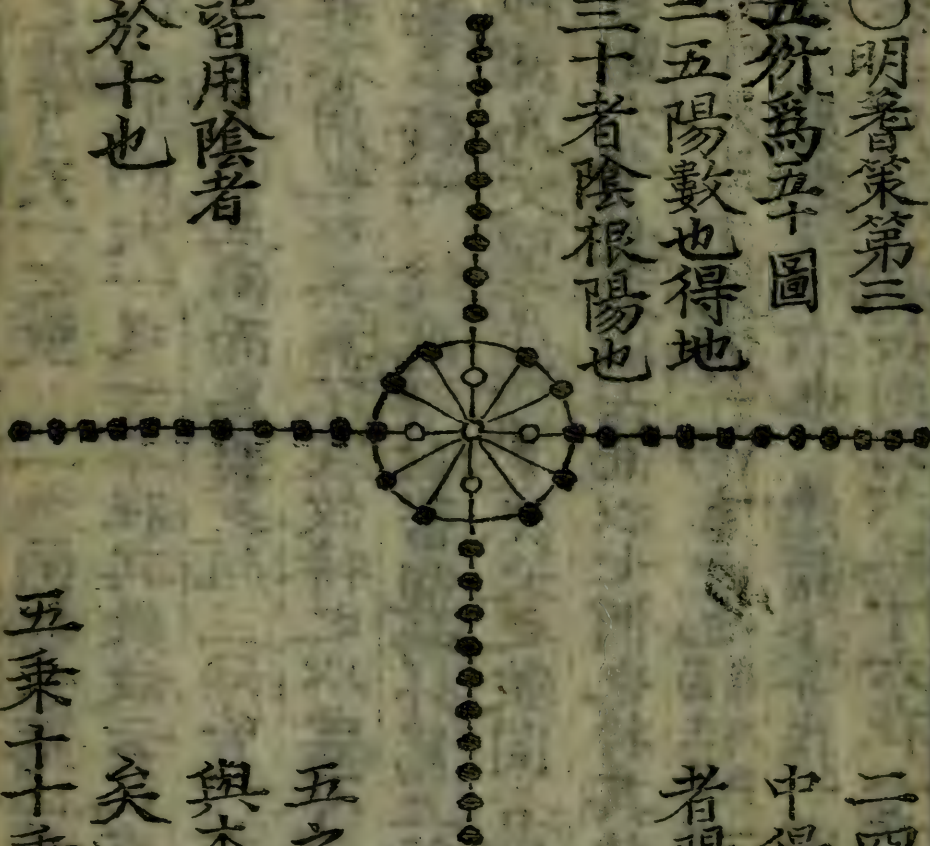 明蓍策第三
五衍爲五十圖
二五陽數也得地
三十者陰根陽也
皆用陰者
於十也
二四
中得
者
五之
與本
矣
五乗十十